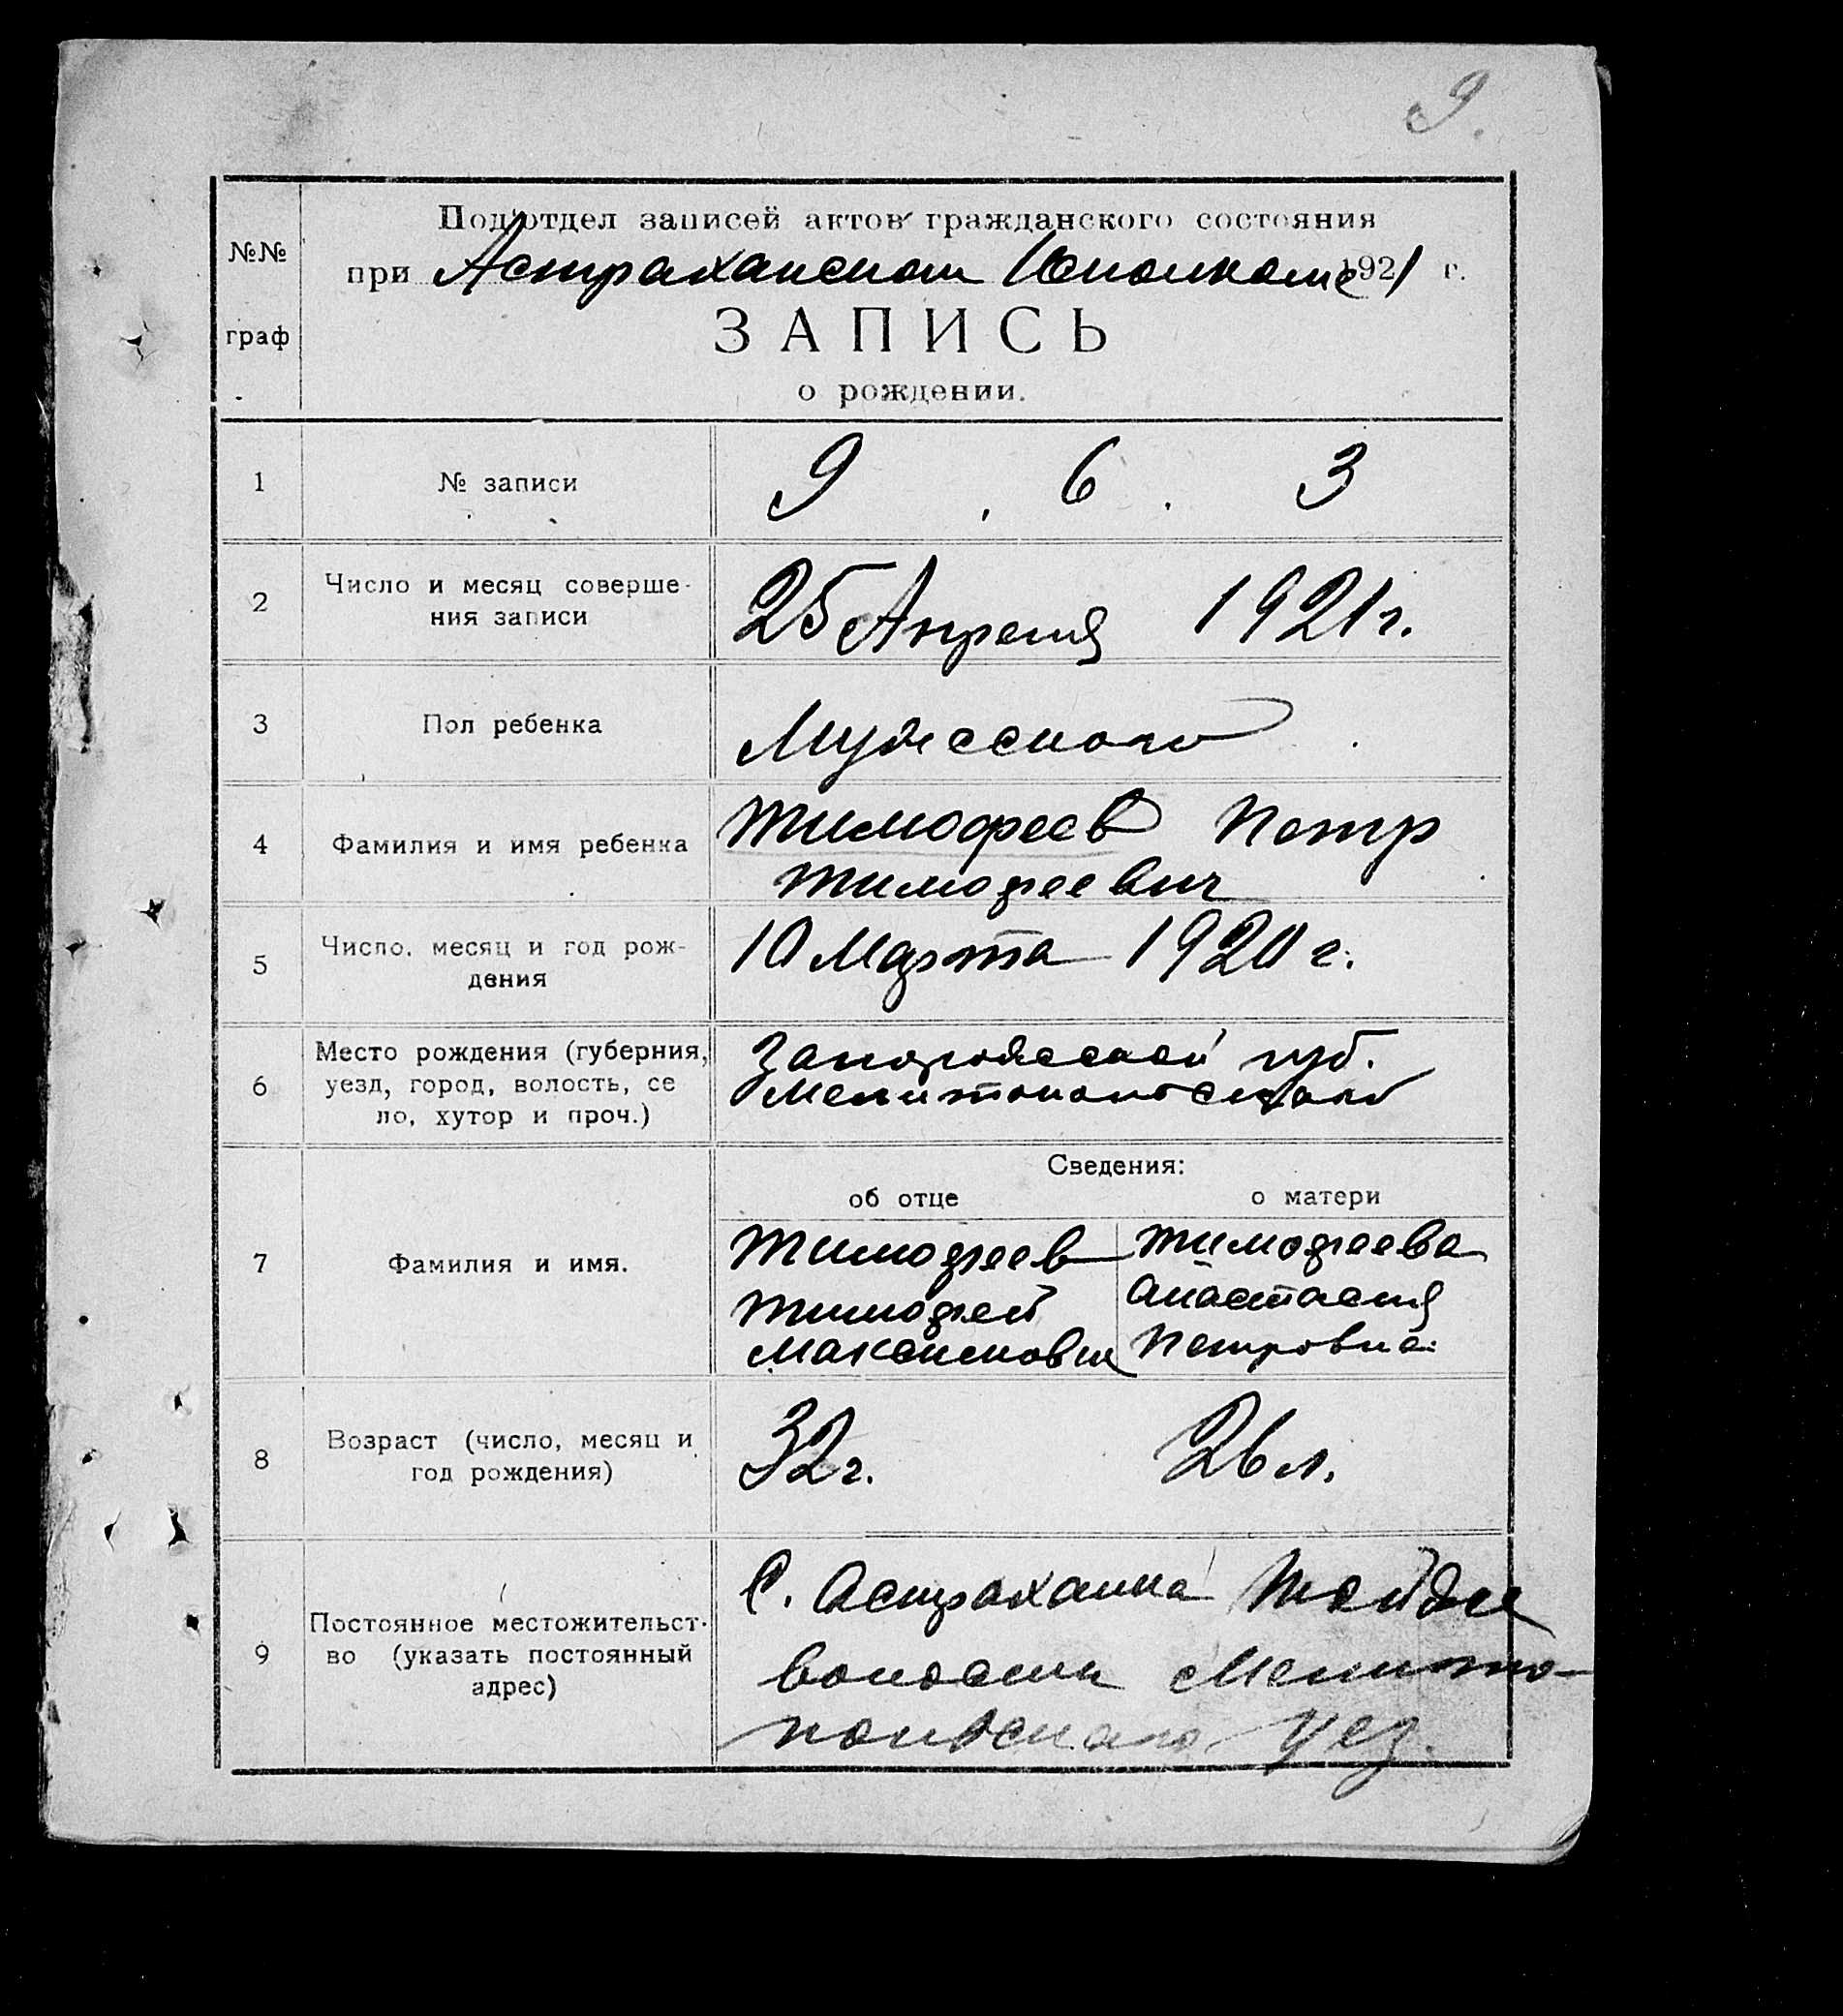 9.
Подотдел записей актов гражданского состояния
при Астраханском Исполкоме 1921 г.
№№
граф
ЗАПИСЬ
о рождении.
1 № записи 9 6 3
2 Число и месяц соверше-
ния записи 25 Апреля 1921 г.
3 Пол ребенка Мужеского
4 Фамилия и имя ребенка Тимофеев Петр
Тимофеевич
5 Число, месяц и год рож-
дения 10 Марта 1920 г.
6 Место рождения (губерния,
уезд, город, волость, се
ло, хутор и проч.) Запорожеской губ.
Мелитопольского
Сведения:
об отце о матери
7 Фамилия и имя. Тимофеев Тимофеева
Тимофей Анастасия
Максимович Петровна
8 Возраст (число, месяц и
год рождения) 32 г. 26 л.
9 Постоянное местожительст-
во (указать постоянный
адрес) С. Астраханка
волости Мелито-
польского уез.